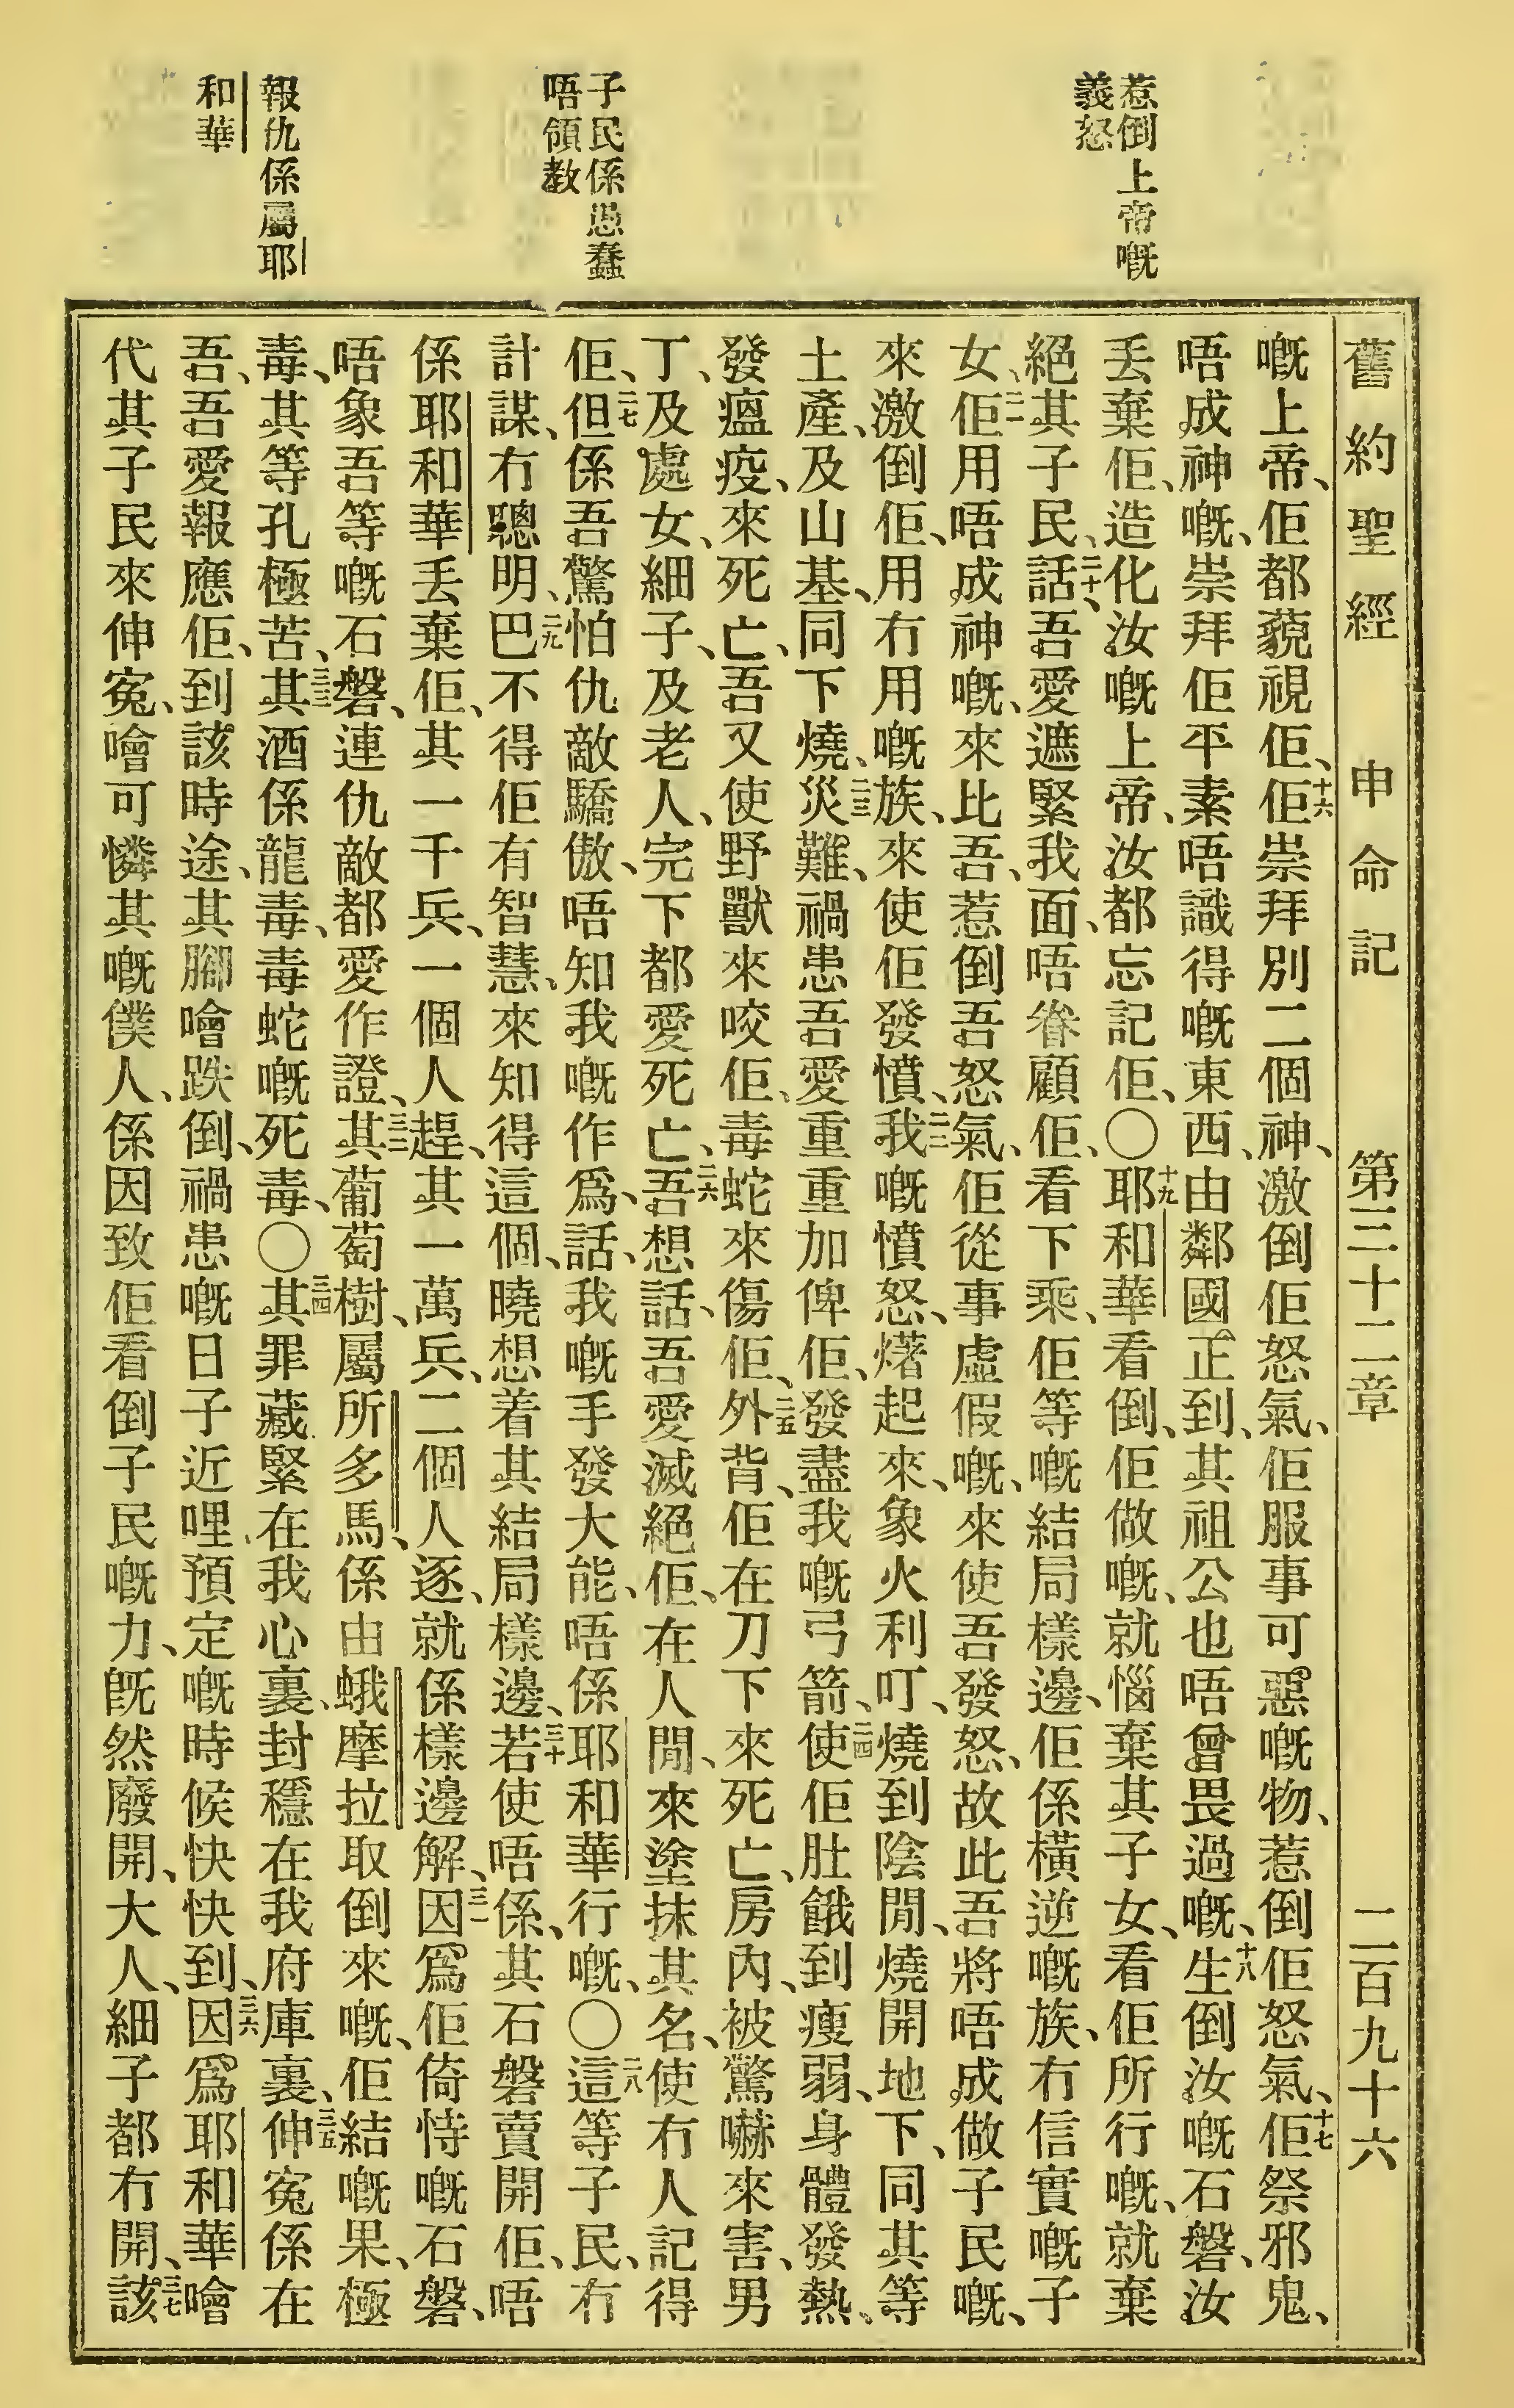 惹倒上帝嘅
義怒
子民係愚蠢
唔領敎
報仇係屬耶
和華
舊約聖經 申命記 第三十二章 二百九十六
嘅上帝、佢都藐視佢、十六佢崇拜別二個神、激倒佢怒氣、佢服事可惡嘅物、惹倒佢怒氣、十七佢祭邪鬼、
唔成神嘅、崇拜佢平素唔識得嘅東西、由鄰國正到、其祖公也唔曾畏過嘅、十八生倒汝嘅石磐、汝
丢棄佢、造化汝嘅上帝、汝都忘記佢、〇十九耶和華看倒、佢做嘅、就惱棄其子女、看佢所行嘅、就棄
絕其子民、二十話、吾愛遮緊我面、唔眷顧佢、看下乘、佢等嘅結局樣邊、佢係橫逆嘅族、冇信實嘅子
女、二一佢用唔成神嘅、來比吾、惹倒吾怒氣、佢從事虛假嘅、來使吾發怒、故此吾將唔成做子民嘅、
來激倒佢、用冇用嘅族、來使佢發憤、二二我嘅憤怒、㷮起來、象火利叮、燒到陰間、燒開地下、同其等
土產、及山基、同下燒、二三災難、禍患吾愛重重加俾佢、發盡我嘅弓箭、二四使佢肚餓到瘦弱、身體發熱、
發瘟疫、來死亡、吾又使野獸來咬佢、毒蛇來傷佢、二五外背、佢在刀下來死亡、房內、被驚嚇來害、男
丁、及處女、細子、及老人、完下都愛死亡、二六吾想話、吾愛滅絕佢、在人間、來塗抹其名、使冇人記得
佢、二七但係吾驚怕仇敵驕傲、唔知我嘅作爲、話、我嘅手發大能、唔係耶和華行嘅、〇二八這等子民、冇
計謀、冇聰明、二九巴不得佢有智慧、來知得這個、曉想着其結局樣邊、三十若使唔係、其石磐賣開佢、唔
係耶和華丢棄佢、其一千兵、一個人趕、其一萬兵、二個人逐、就係樣邊解、三一因爲佢倚恃嘅石磐、
唔象吾等嘅石磐、連仇敵都愛作證、三二其葡萄樹、屬所多馬、係由蛾摩拉取倒來嘅、佢結嘅果、極
毒、其等孔極苦、三三其酒係龍毒、毒蛇嘅死毒、〇三四其罪藏緊在我心裏、封穩在我府庫裏、三五伸寃係在
吾、吾愛報應佢、到該時途、其腳噲跌倒、禍患嘅日子近哩、預定嘅時候快快到、三六因爲耶和華噲
代其子民來伸寃、噲可憐其嘅僕人、係因致佢看倒子民嘅力、旣然廢開、大人、細子都冇開、三七該